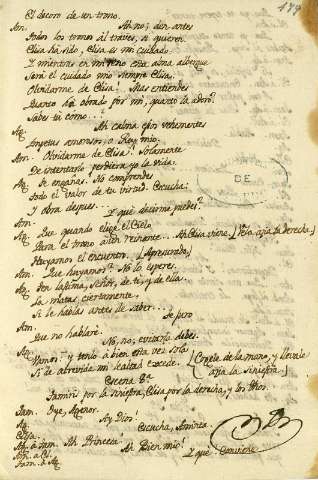 479
El decoro de un trono.
Am. Ah no; den antes
todos los tronos al traves, si quieren
Elisa ha sido, Elisa es mi cuidado
Y mientras en mi seno esta alma albergue
Será el cuidado mio siempre Elisa.
Olvidarme de Elisa! Mas entiendes
Quanto há obrado por mi, quanto la adoro?
Sabes tu como...
Ag. Ah calma esos vehementes
Impetus amoroso, o Rey mio.
Am. Olvidarme de Elisa! Solamente
De intentarlo perdiera yo la vida.
Ag. Te engañas. No comprendes
todo el valor de tu virtud. Escucha:
Y obra despues.
Am. Y qué decirme puedes?
Ag. Que quando elige el Cielo
Para el trono a un reinante... Ah Elisa viene. [Ve a la derecha.]
Huyamos el encuentro. [Apresurado]
Am. Que huyamos? No lo esperes.
Ag. Ten lastima, Señor, de ti, y de ella.
La matas ciertamente,
Si le hablas antes de saber...
Am. Te juro
Que no hablaré.
Ag. No, no; evitarla debes.
Vamos: y tenlo á bien esta vez sola
Si se atrevido mi lealtad excede. [Cogele de la mano, y llevale
a la siniestra.]
Escena 8ª
Tamiri por la siniestra, Elisa por la derecha, y los dhos.
Tam. Oye, Agenor.
Ag. Ay Dios!
Elisa. Escucha, Aminta.
Ag. á Tam. Ah Princesa
Am. a El. Ah Bien mio!
Tam. á Ag. Y qué! Conviene
DE